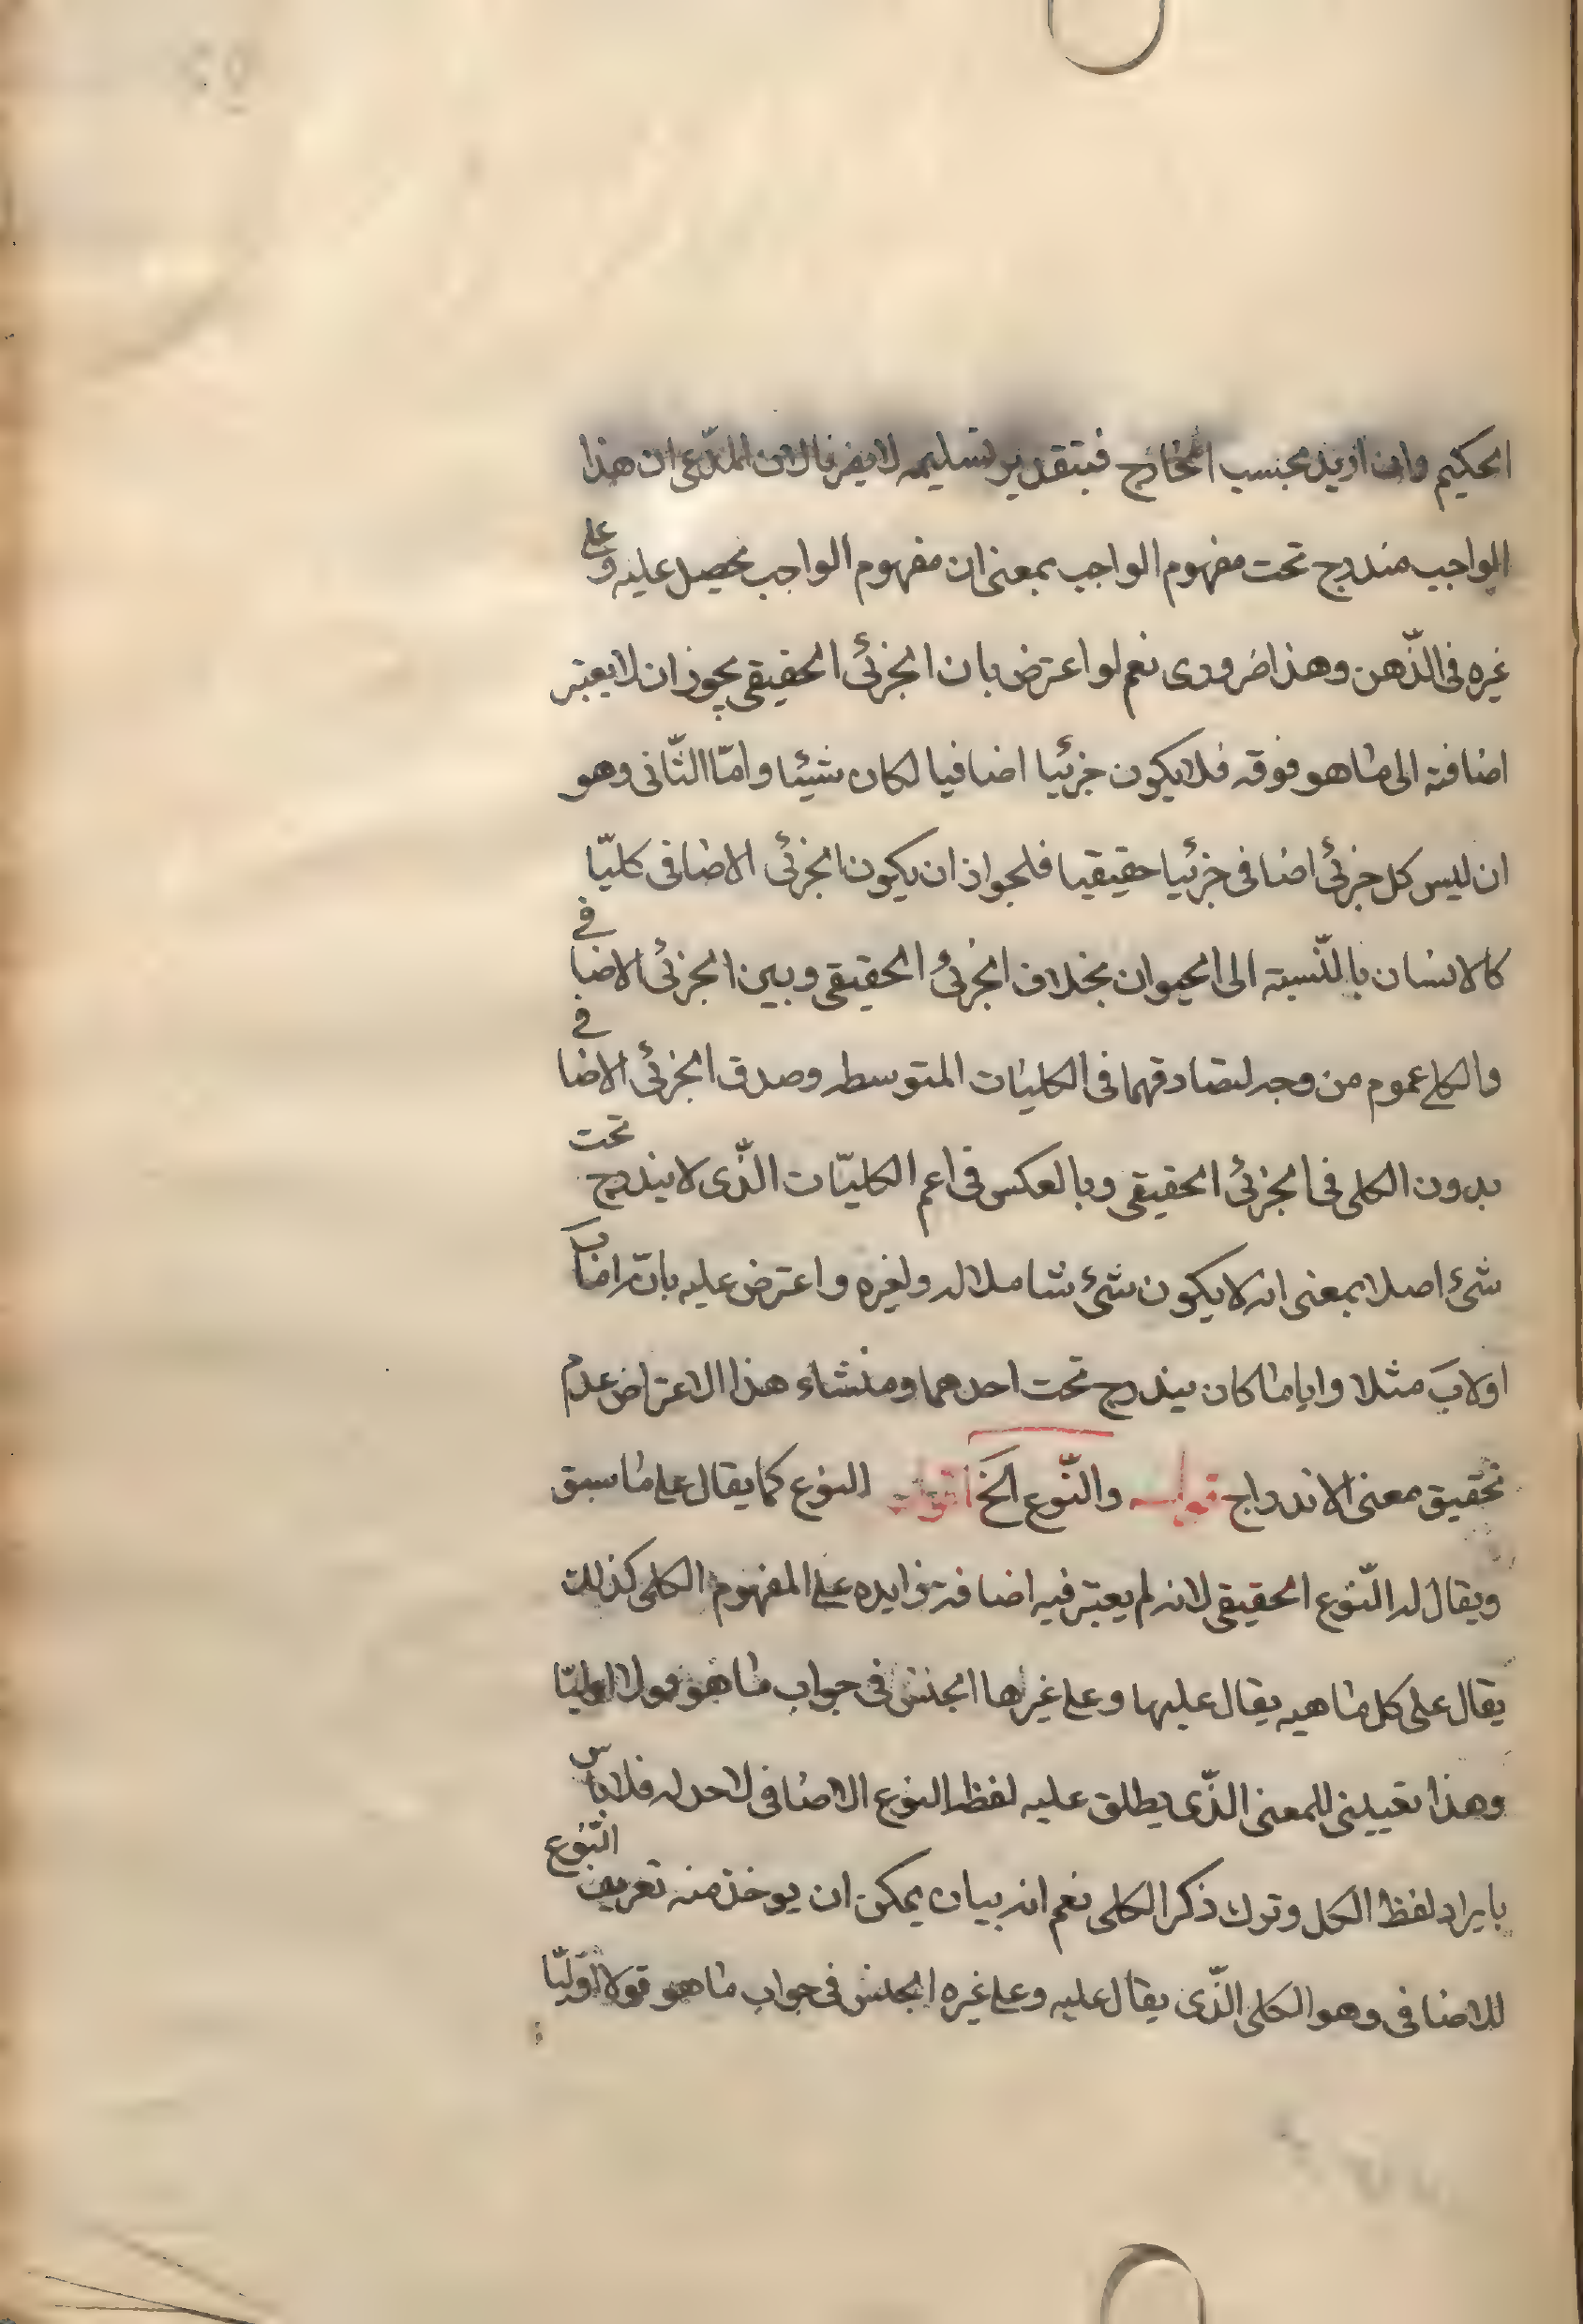 الحكيم وان اريد بحسب الخارج فبتقدير تسليمه لا يضرنا لان المدّعى ان هذا
الواجب مندرج تحت مفهوم الواجب بمعنى ان مفهوم الواجب يحصل عليه وعلى
غيره فى الذّهن وهذا ضرورى نعم لو اعترض بان الجزئى الحقيقى يجوز ان لا يعتبر
اضافته الى ما هو فوقه فلا يكون جزئيا اضافيا لكان شيئا وامّا الثّانى وهو
ان ليس كل جزئى اضافى جزئيا حقيقيا فلجواز ان يكون الجزئى الاضافى كليّا
كالانسان بالنّسبة الى الحيوان بخلاف الجزئى الحقيقى وبين الجزئى الاضافى
والكلى عموم من وجه لتصادقهما فى الكليات المتوسطه وصدق الجزئى الاضافى
بدون الكلى فى الجزئى الحقيقى وبالعكس فى اعم الكليّات الذّى لا يندرج تحت
شئ اصلا بمعنى انه لا يكون شئ شاملا له ولغيره واعترض عليه بانّه اما ب
اولاب مثلا وايا ما كان يندرج تحت احدهما ومنشاء هذا الاعتراض عدم
تحقيق معنى الاندراج قوله والنّوع الخ اقول النوع كما يقال على ما سبق
ويقال له النّوع الحقيقى لانه لم يعتبر فيه اضافة زايده على المفهوم الكلى كذلك
يقال على كل ماهيه يقال عليها وعلى غيرها الجنس فى جواب ما هو قولا اوليّا
وهذا تعيين للمعنى الذّى يطلق عليه لفظ النوع الاضافى لا حد له فلا باس
بايراد لفظ الكل وترك ذكر الكلى نعم انه بيان يمكن ان يوخذ منه تعريف النّوع
للاضافى وهو الكلى الذّى يقال عليه وعلى غيره الجنس فى جواب ما هو قولا اوّليّا